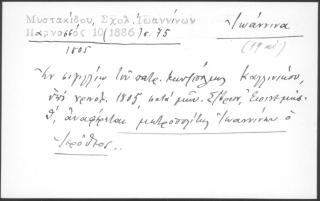 Μυστακίδου, Σχολ. Ἰωαννίνων
Παρνασσός 10 (1886) σ. 75
Ἰωάννινα
(19 αἰ)
1805
Ἐν σιγιλλίῳ τοῦ πατρ. Κων/πόλεως Καλλινίκου,
ὑπὸ χρονολ. 1805 κατὰ μῆνα Σ/βριον,
Θ΄, ἀναφέρεται μητροπολίτης Ἰωαννίνων ὁ
Ἱερόθεος..